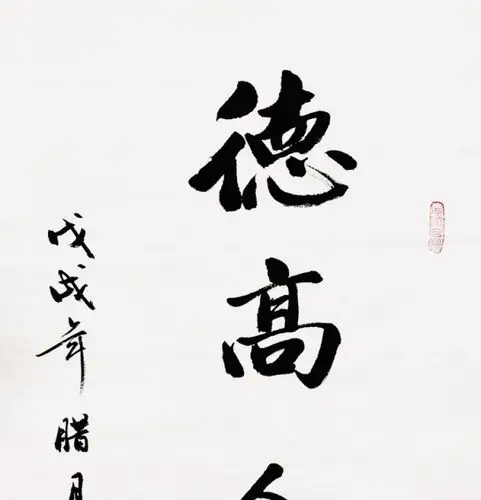 德高
戊戌年腊月